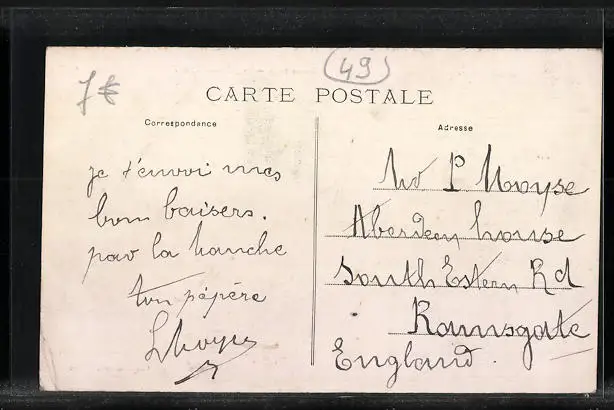 7€
49
CARTE POSTALE
Correspondance
Adresse
je t'envoi mes
bon baisers.
par la manche
ton pépère
LMoyse
P Moÿse
Aberdeen house
South Estern Rd
Ramsgate
England.